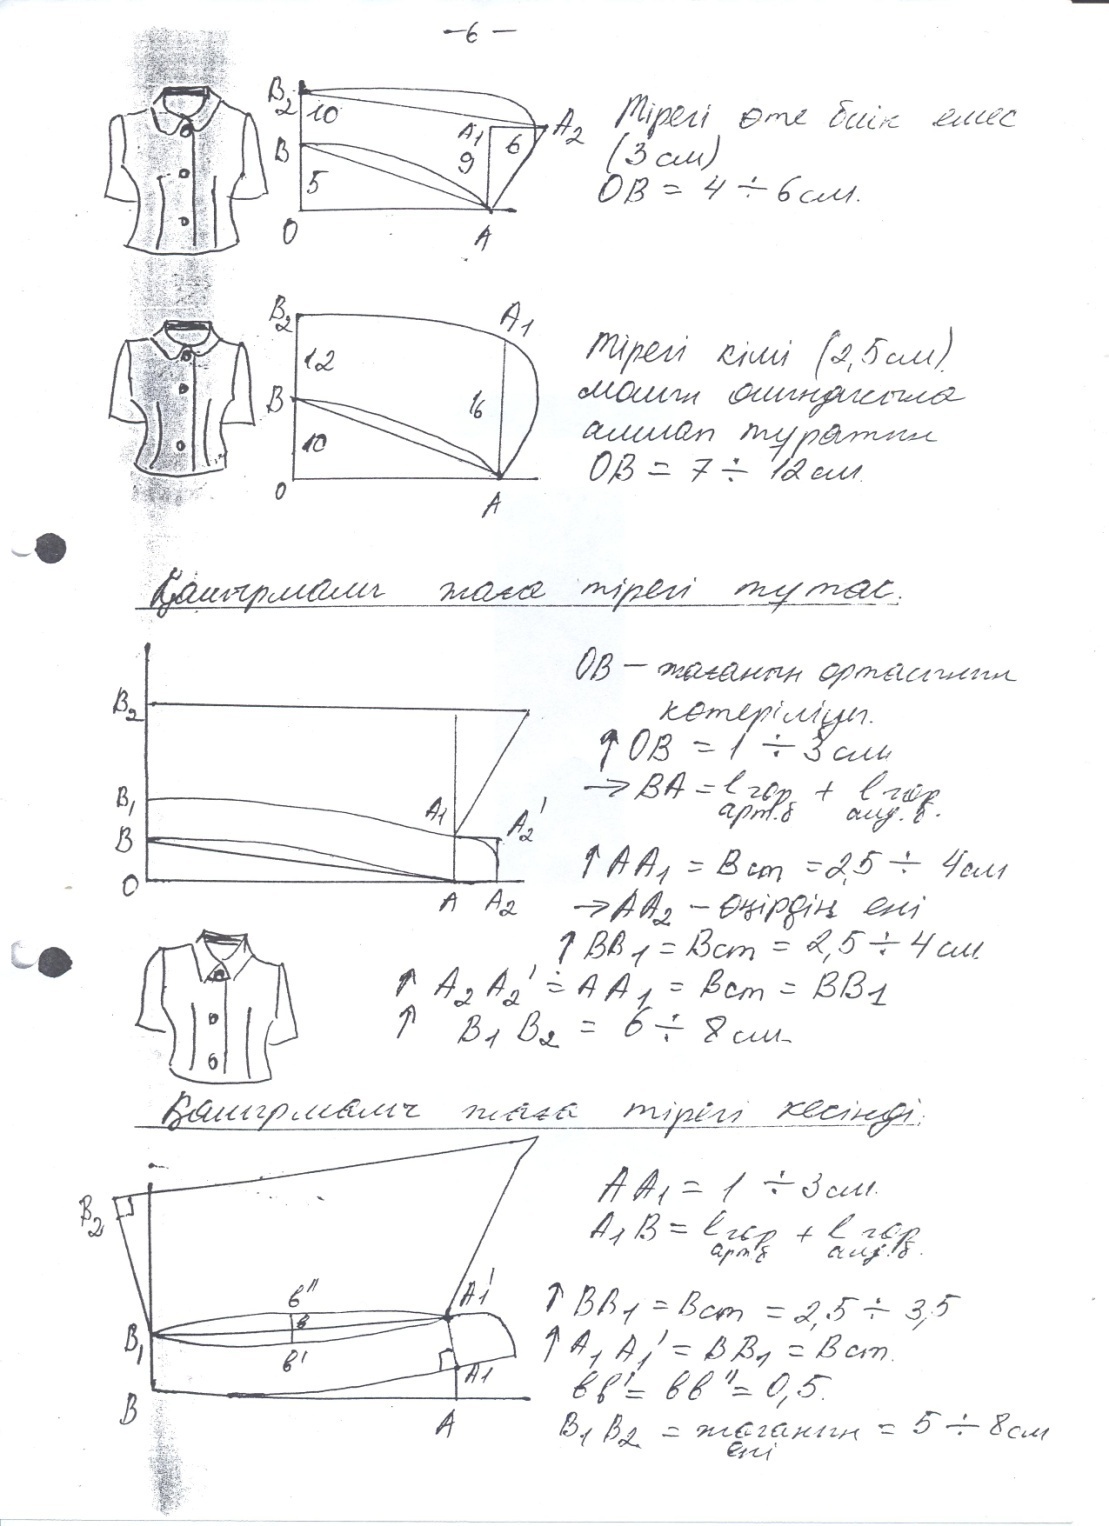 -6-
B₂
10
A₁
A₂
B
9
6
5
O
A
Тірегі өте биік емес
(3 см)
OB = 4 ÷ 6 см.
B₂
A₁
12
B
16
10
O
A
Тірегі кіші (2,5 см)
мойын
тұратын
OB = 7 ÷ 12 см
Қайырмалы жаға тірегі тұтас.
B₂
B₁
A₁
A₂'
B
O
A
A₂
OB — жағаның ортасының
көтерілуі.
↑ OB = 1 ÷ 3 см
→ BA = l гор арт.б + l гор алд.б.
↑ AA₁ = Вст = 2,5 ÷ 4 см
→ AA₂ — өңірдің ені
↑ BB₁ = Вст = 2,5 ÷ 4 см
↑ A₂A₂' = AA₁ = Вст = BB₁
↑ B₁B₂ = 6 ÷ 8 см
Қайырмалы жаға тірегі кесінді.
B₂
в"
в
A₁'
B₁
в'
A₁
B
A
AA₁ = 1 ÷ 3 см.
A₁B = l гор арт.б + l гор алд.б.
↑ BB₁ = Вст = 2,5 ÷ 3,5
↑ A₁A₁' = BB₁ = Вст.
вв' = вв" = 0,5.
B₁B₂ = жағаның ені = 5 ÷ 8 см